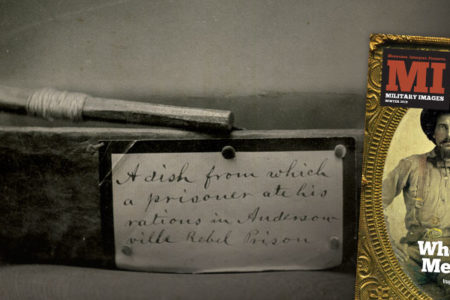 A dish from which
a prisoner ate his
rations in Anderson
ville Rebel Prison
MI
MILITARY IMAGES
Wh
Me